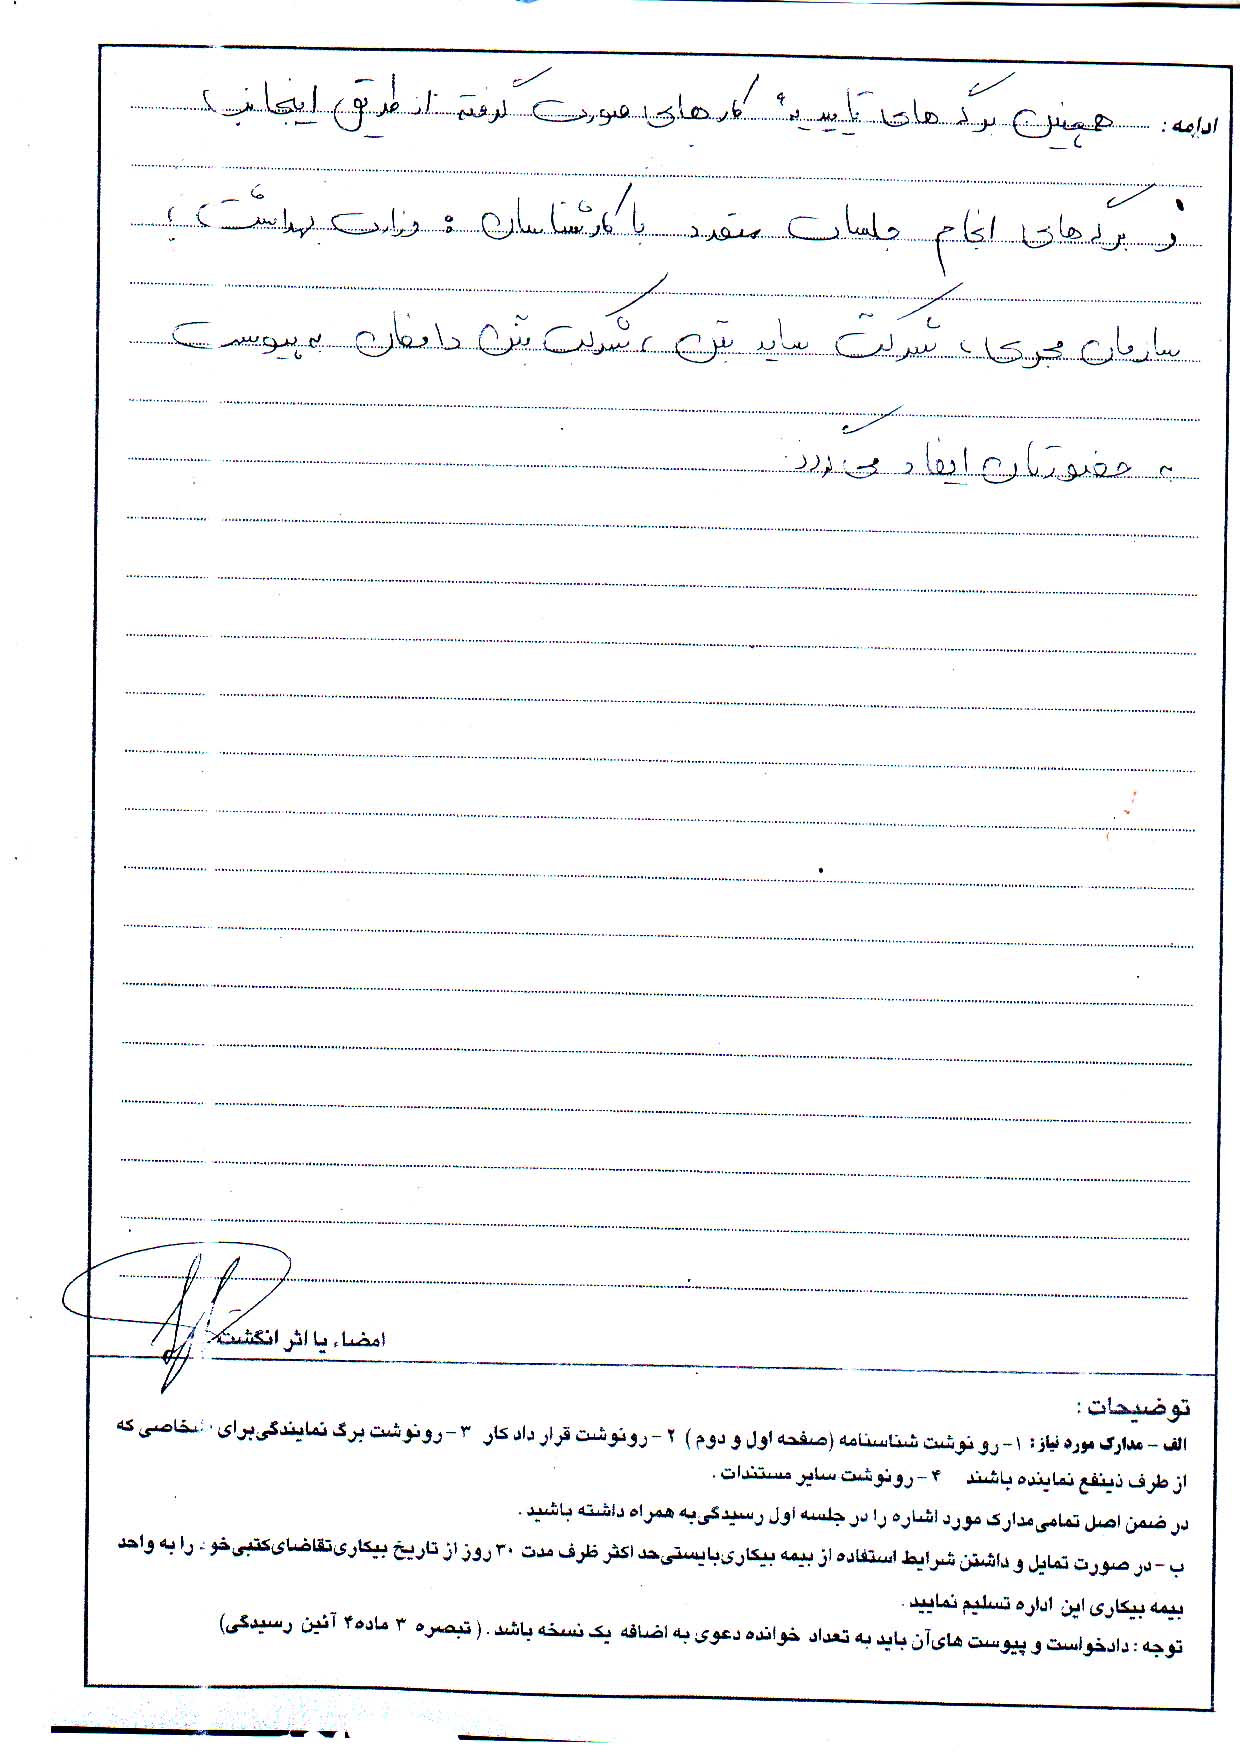 ادامه: همچنین برگه های تاییدیه کارهای صورت گرفته از طریق اینجانب،
و برگه‌های انجام جلسات متعدد با کارشناسان: وزارت بهداشت،
سازمان مجری، شرکت ساید بتن، شرکت بتن دامغان به پیوست
به حضورتان ایفاد می گردد.
امضاء یا اثر انگشت
توضیحات :
الف - مدارک مورد نیاز: ۱- رو نوشت شناسنامه (صفحه اول و دوم) ۲- رونوشت قرار داد کار ۳- رونوشت برگ نمایندگی برای اشخاصی که
از طرف ذینفع نماینده باشند ۴- رونوشت سایر مستندات .
در ضمن اصل تمامی مدارک مورد اشاره را در جلسه اول رسیدگی به همراه داشته باشید .
ب - در صورت تمایل و داشتن شرایط استفاده از بیمه بیکاری بایستی حد اکثر ظرف مدت ۳۰ روز از تاریخ بیکاری تقاضای کتبی خود را به واحد
بیمه بیکاری این اداره تسلیم نمایید .
توجه : دادخواست و پیوست های آن باید به تعداد خوانده دعوی به اضافه یک نسخه باشد . ( تبصره ۳ ماده ۴ آئین رسیدگی)